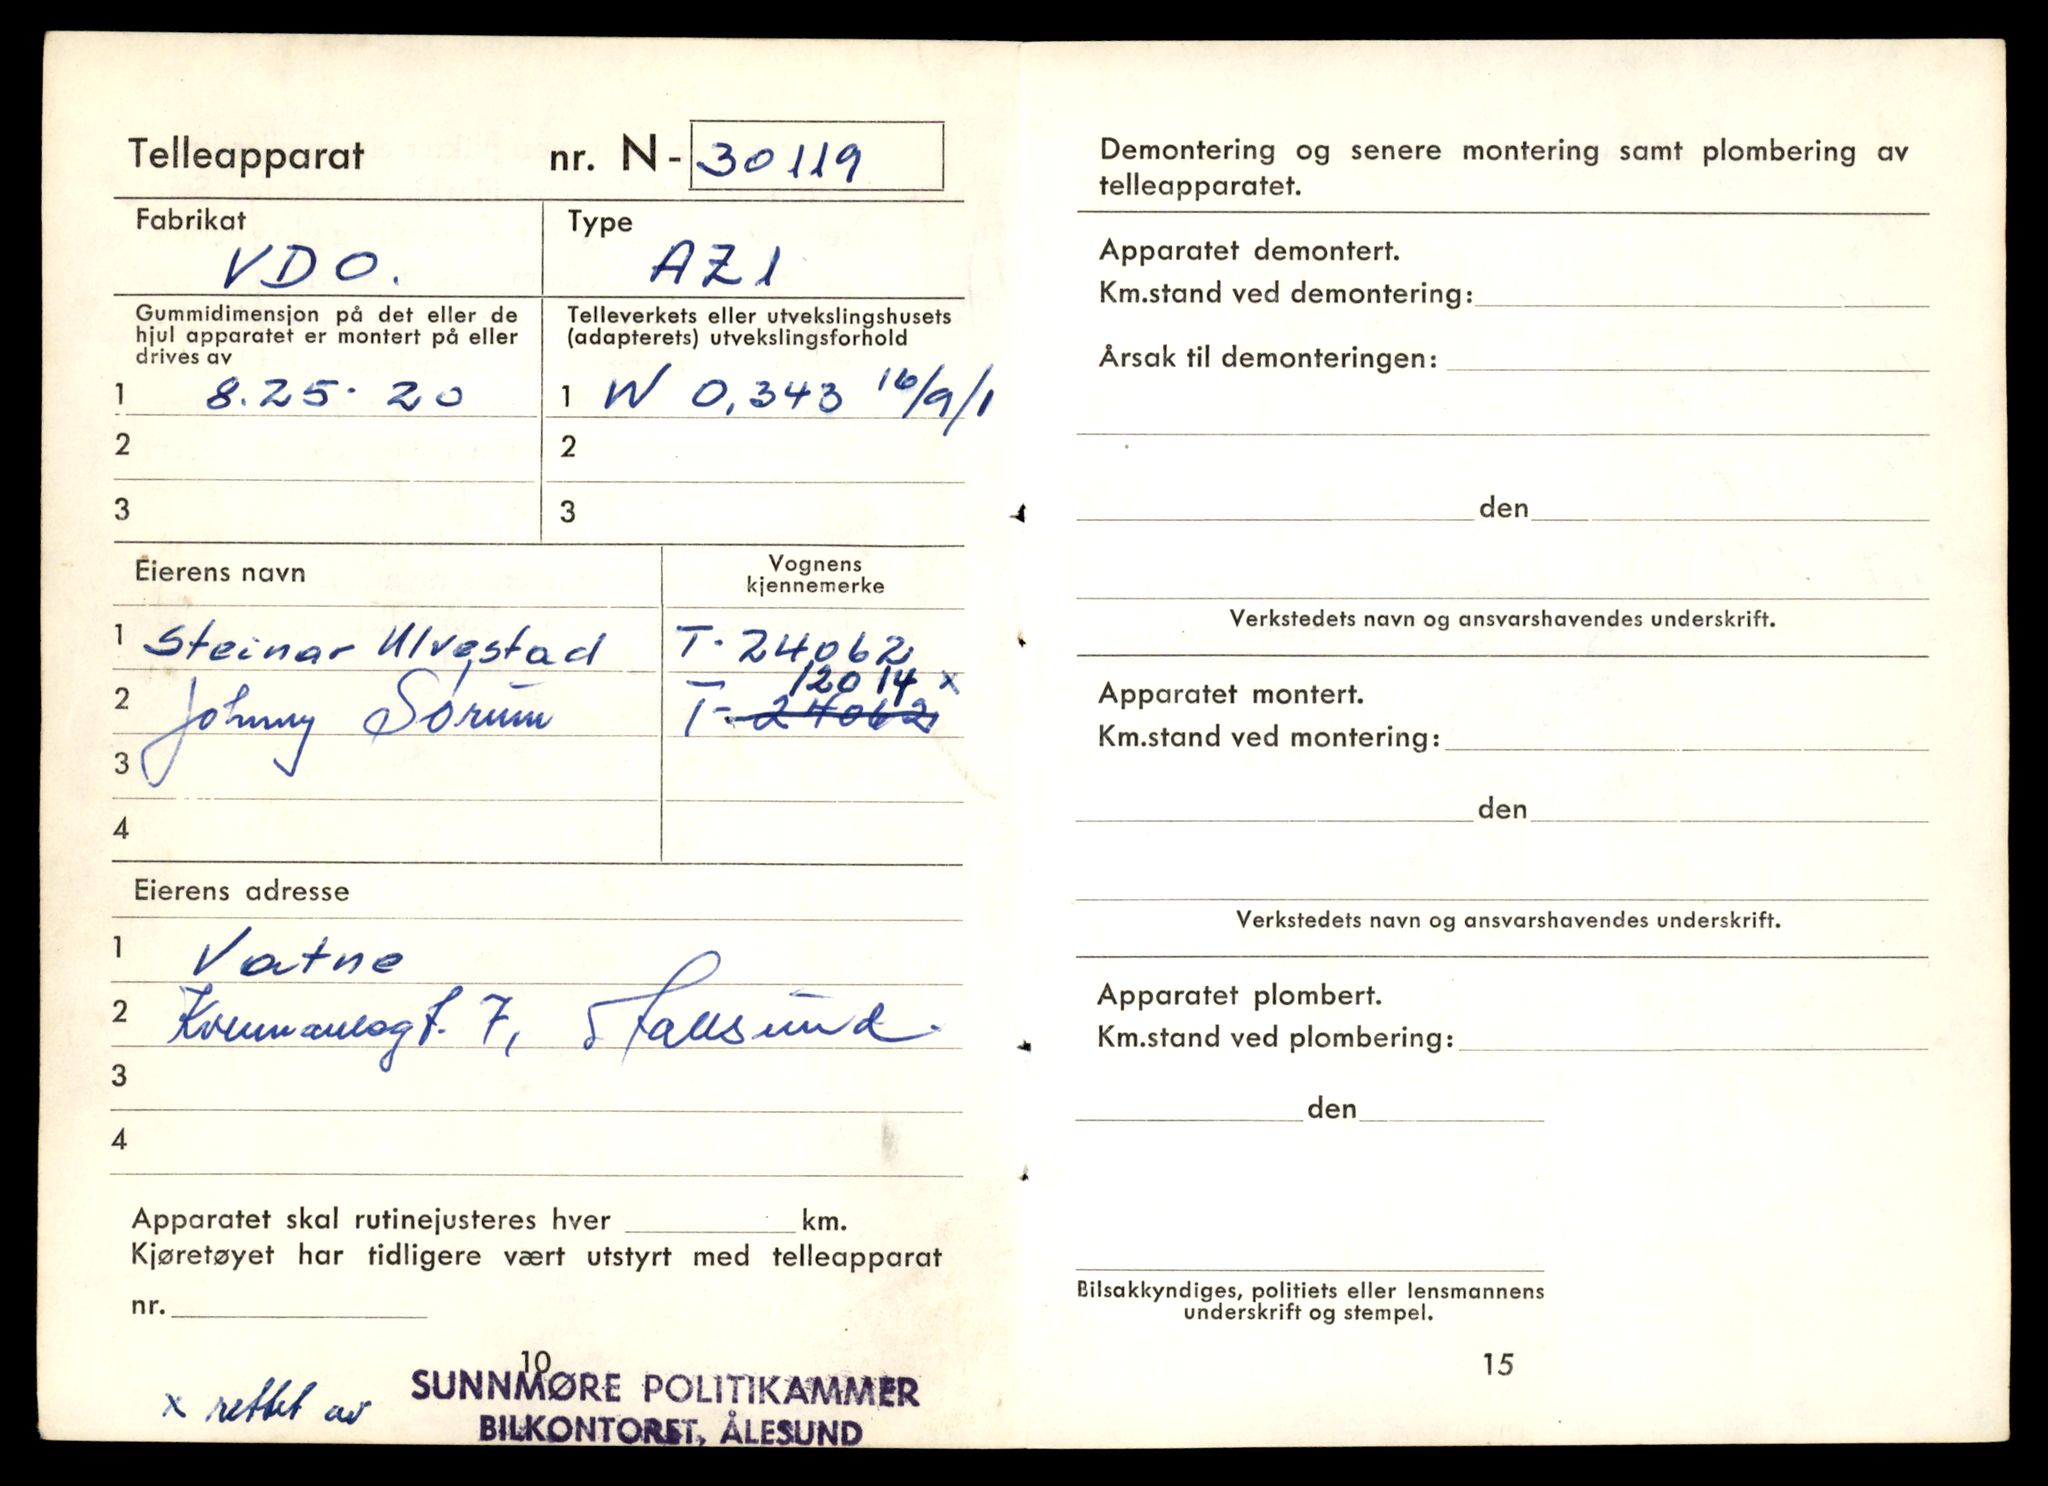 Telleapparat nr. N- 30119
Fabrikat
VDO.
Type
AZ1
Gummidimensjon på det eller de
hjul apparatet er montert på eller
drives av
1 8.25-20
2
3
Telleverkets eller utvekslingshusets
(adapterets) utvekslingsforhold
1 W 0,343 16/9/1
2
3
Eierens navn
Vognens
kjennemerke
1 Steinar Ulvestad T-24062
12014 x
2 Johnny Sorum T-24062
3
4
Eierens adresse
1 Vatne
2 7,
3
4
Apparatet skal rutinejusteres hver km.
Kjøretøyet har tidligere vært utstyrt med telleapparat
nr.
10
x rettet av
SUNNMØRE POLITIKAMMER
BILKONTORET, ÅLESUND
Demontering og senere montering samt plombering av
telleapparatet.
Apparatet demontert.
Km.stand ved demontering:
Årsak til demonteringen:
den
Verkstedets navn og ansvarshavendes underskrift.
Apparatet montert.
Km.stand ved montering:
den
Verkstedets navn og ansvarshavendes underskrift.
Apparatet plombert.
Km.stand ved plombering:
den
Bilsakkyndiges, politiets eller lensmannens
underskrift og stempel.
15